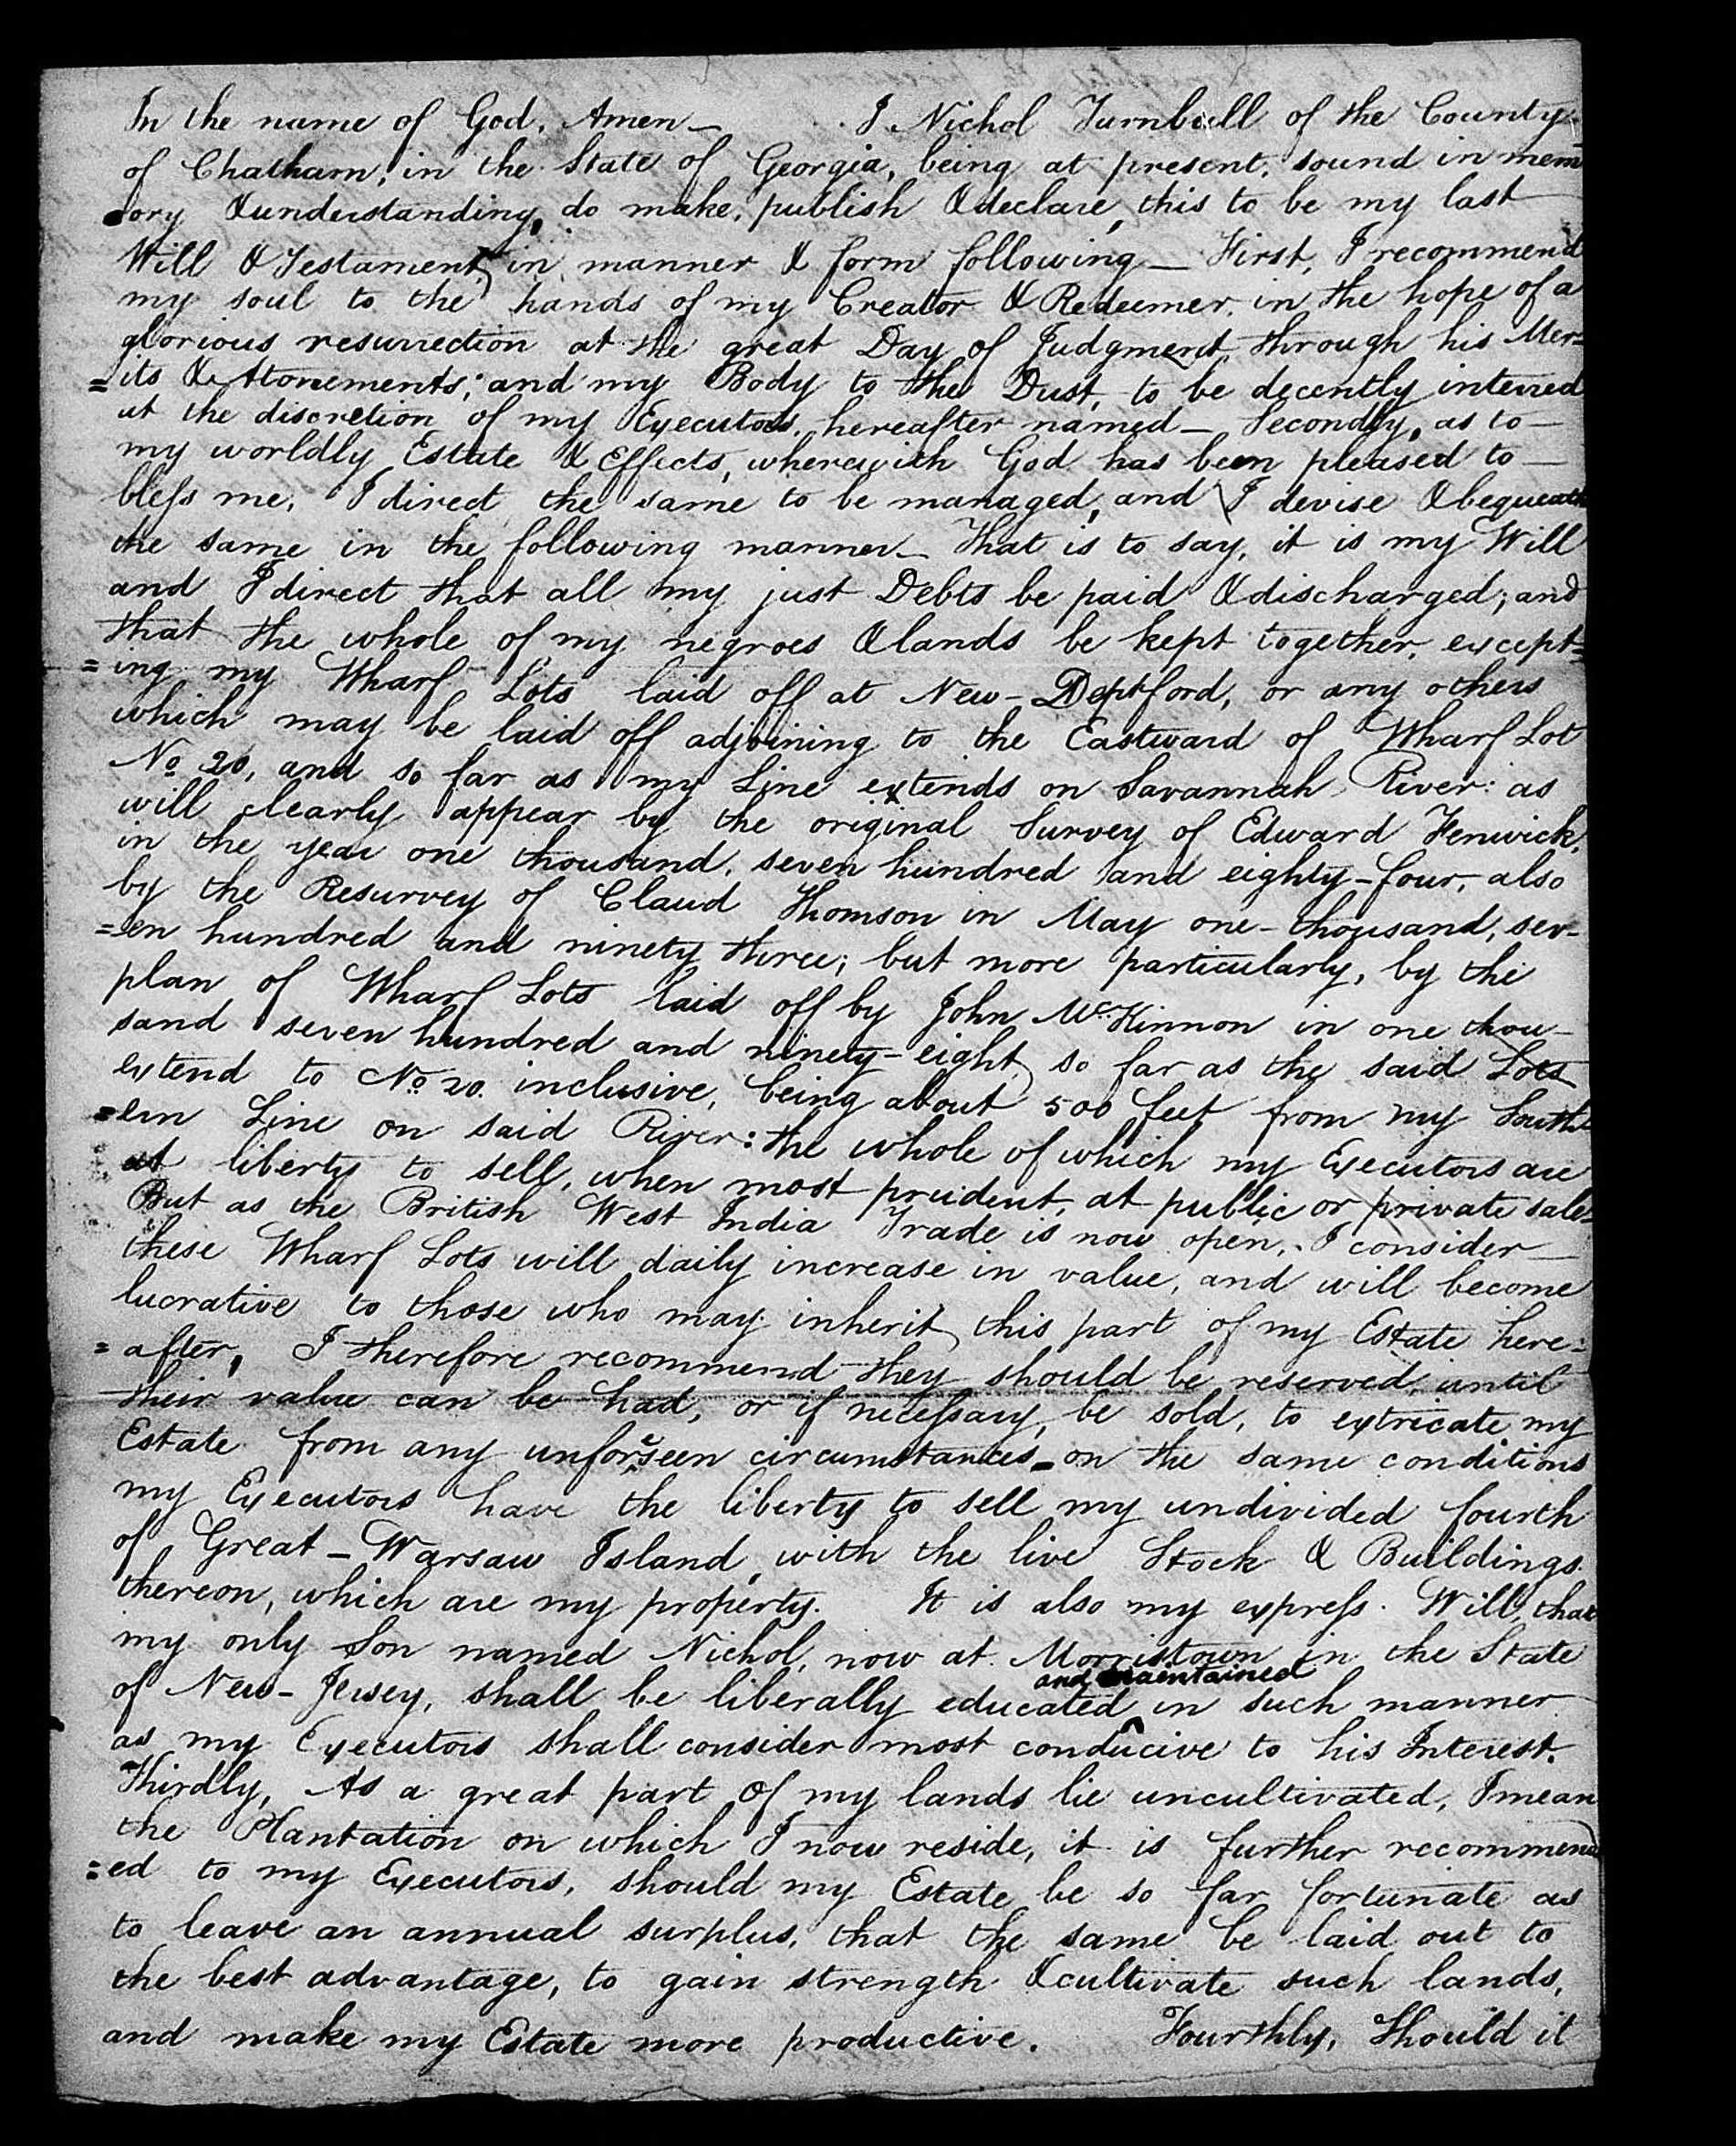 In the name of God, Amen— I Nichol Turnbull of the County
of Chatham, in the State of Georgia, being at present, sound in mem
ory & understanding, do make, publish & declare, this to be my last
Will & Testament, in manner & form following— First, I recommend
my soul to the hands of my Creator & Redeemer, in the hope of a
glorious resurrection at the great Day of Judgment, through his Mer=
=its & Attonements; and my Body to the Dust, to be decently interred
at the discretion of my Executors, hereafter named— Secondly, as to—
my worldly Estate & Effects, wherewith God has been pleased to—
bless me, I direct the same to be managed, and I devise & bequeath
the same in the following manner— That is to say, it is my Will
and I direct that all my just Debts be paid & discharged; and
that the whole of my negroes & lands be kept together, except=
=ing my Wharf Lots laid off at New-Deptford, or any others
which may be laid off adjoining to the Eastward of Wharf Lot
No 20, and so far as my Line extends on Savannah River: as
will clearly appear by the original Survey of Edward Fenwick,
in the year one thousand, seven hundred and eighty-four, also
by the Resurvey of Claud Thomson in May one-thousand, sev-
=en hundred and ninety three; but more particularly, by the
plan of Wharf Lots laid off by John McKinnon in one thou-
sand seven hundred and ninety-eight, so far as the said Lots
extend to No 20. inclusive, being about 500 feet from my South
=ern Line on said River: the whole of which my Executors are
at liberty to sell, when most prudent, at public or private sale.
But as the British West India Trade is now open, I consider—
these Wharf Lots will daily increase in value, and will become
lucrative to those who may inherit this part of my Estate here=
=after, I therefore recommend they should be reserved, until
their value can be had, or if necessary, be sold, to extricate my
Estate from any unforeseen circumstances— on the same conditions
my Executors have the liberty to sell my undivided fourth
of Great-Warsaw Island, with the live Stock & Buildings
thereon, which are my property. It is also my express Will, that
my only Son named Nichol, now at Morristown in the State
and maintained
of New-Jersey, shall be liberally educated in such manner
as my Executors shall consider most conducive to his Interest.
Thirdly, As a great part of my lands lie uncultivated, I mean
the Plantation on which I now reside, it is further recommend
=ed to my Executors, should my Estate be so far fortunate as
to leave an annual surplus, that the same be laid out to
the best advantage, to gain strength & cultivate such lands,
and make my Estate more productive. Fourthly, Should it